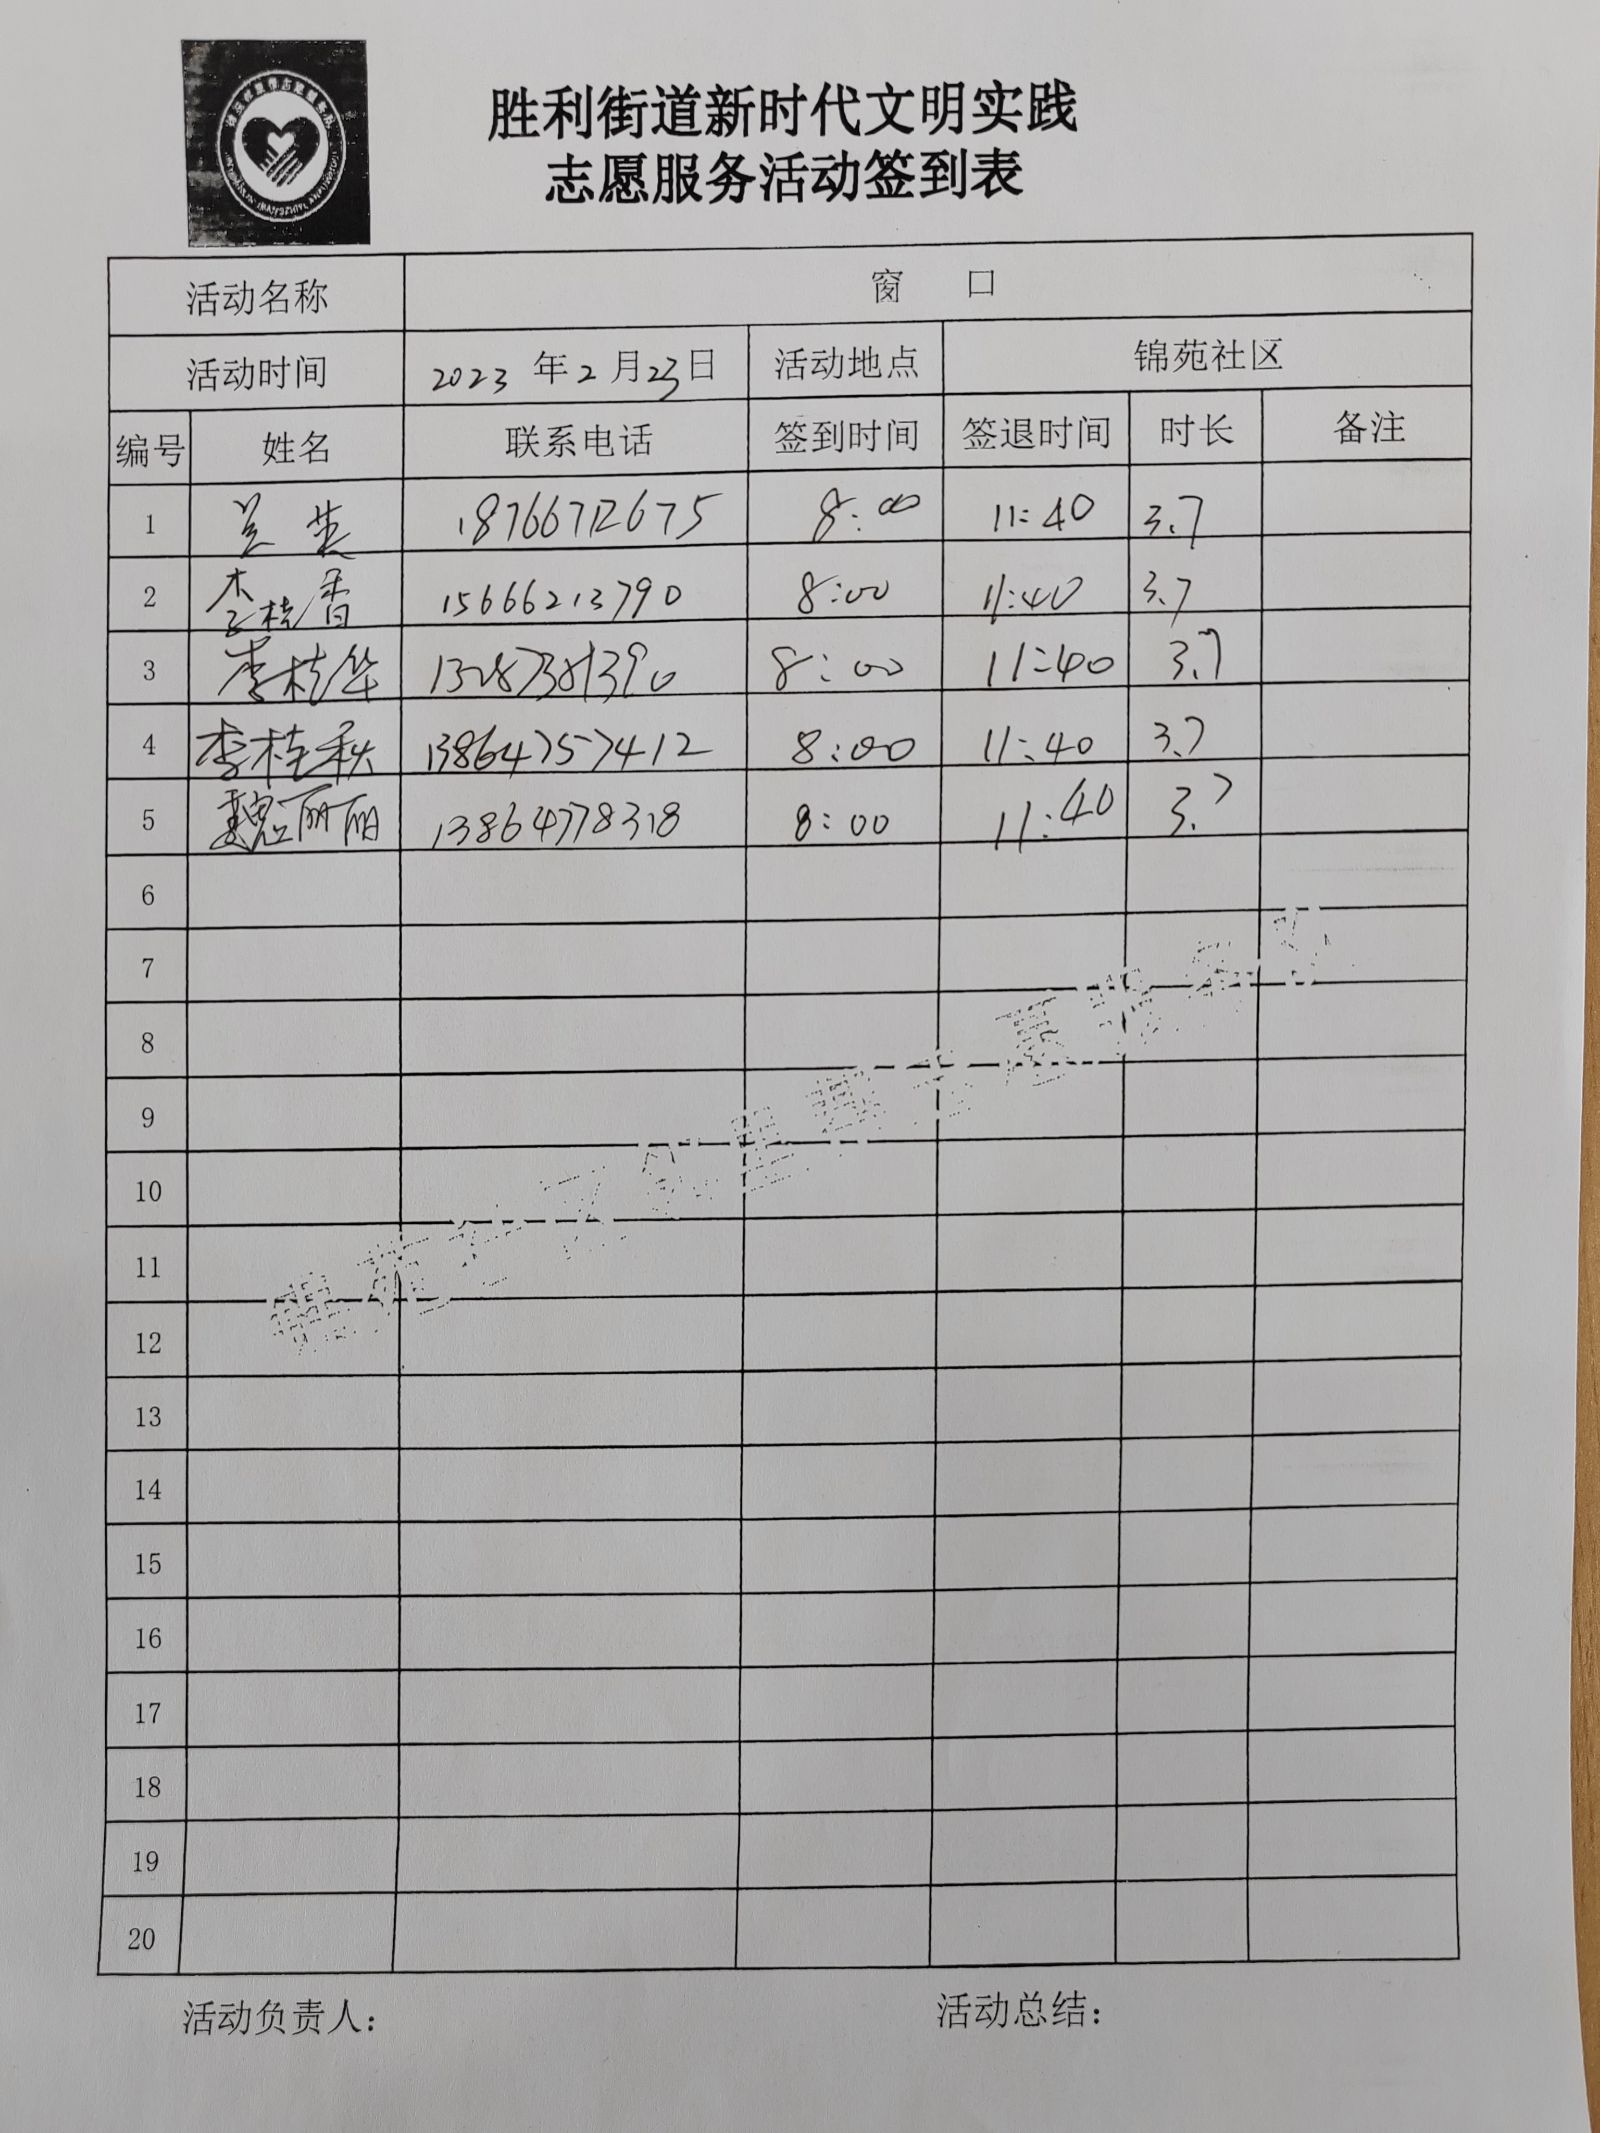 胜利街道新时代文明实践
志愿服务活动签到表
活动名称 窗 口
活动时间 2023 年 2 月 23 日 活动地点 锦苑社区
编号 姓名 联系电话 签到时间 签退时间 时长 备注
1 18766712675 8:00 11:40 3.7
2 李桂香 15666213790 8:00 11:40 3.7
3 李桂华 13287381390 8:00 11:40 3.7
4 李桂秋 13864757412 8:00 11:40 3.7
5 魏丽丽 13864778318 8:00 11:40 3.7
6
7
8
9
10
11
12
13
14
15
16
17
18
19
20
活动负责人: 活动总结: